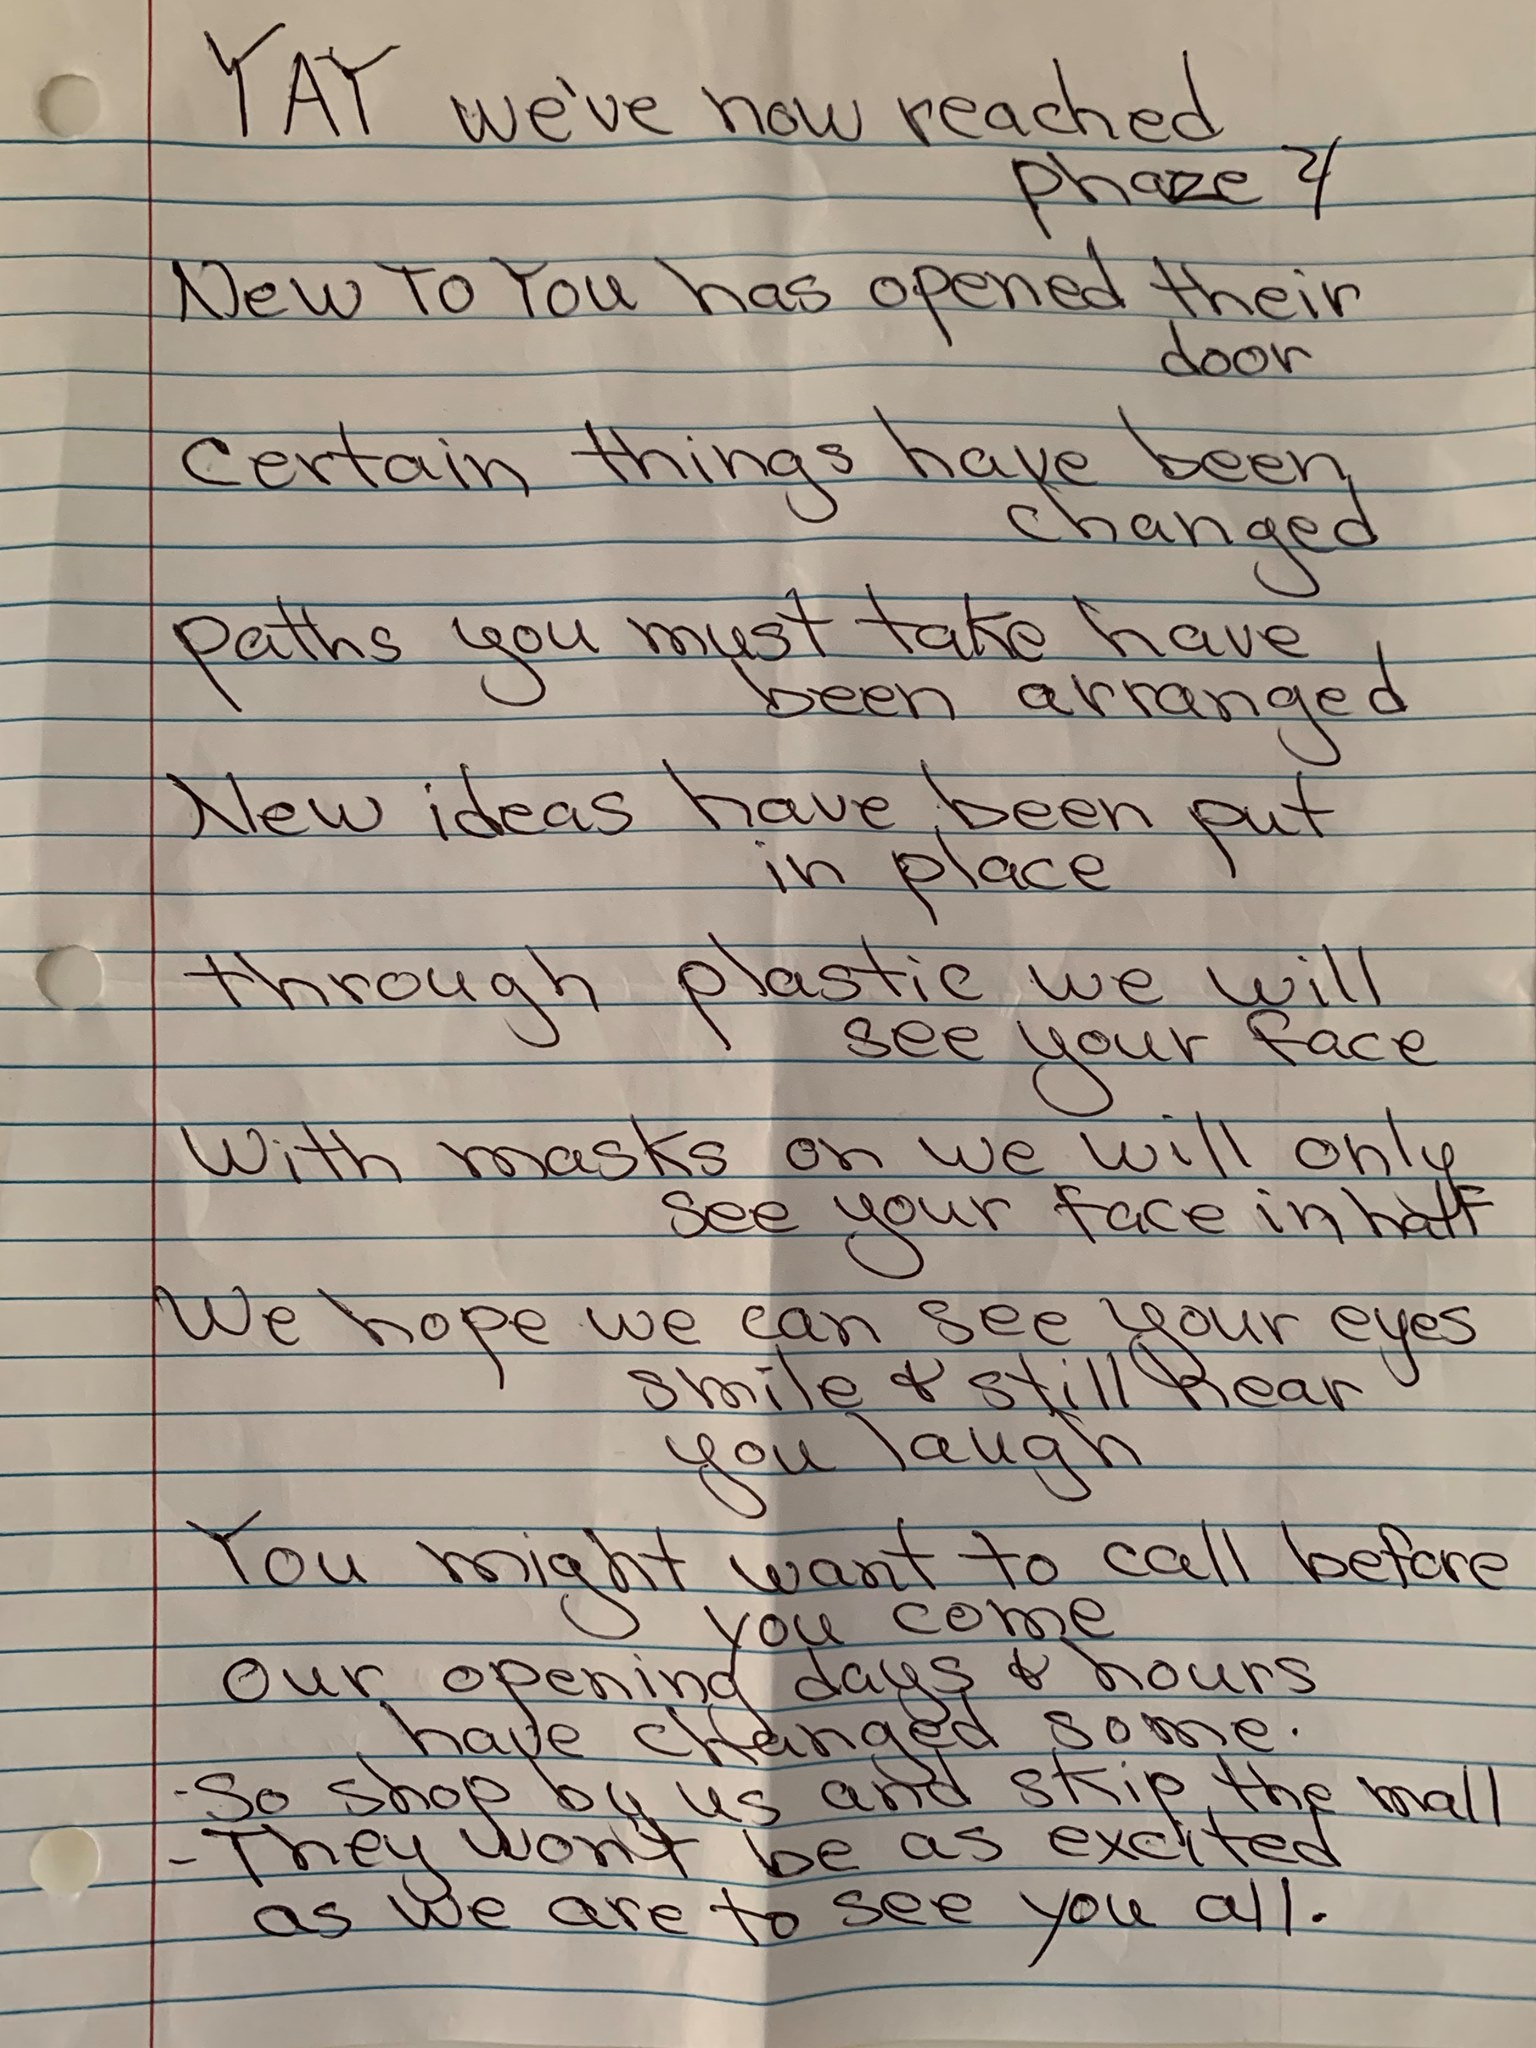 YAY we've now reached
phaze 4
New To You has opened their
door
certain things have been
changed
paths you must take have
been arranged
New ideas have been put
in place
through plastic we will
see your face
With masks on we will only
see your face in half
We hope we can see your eyes
smile & still hear
you laugh
You might want to call before
you come
our opening days & hours
have changed some.
-So shop by us and skip the mall
-They won't be as excited
as we are to see you all.